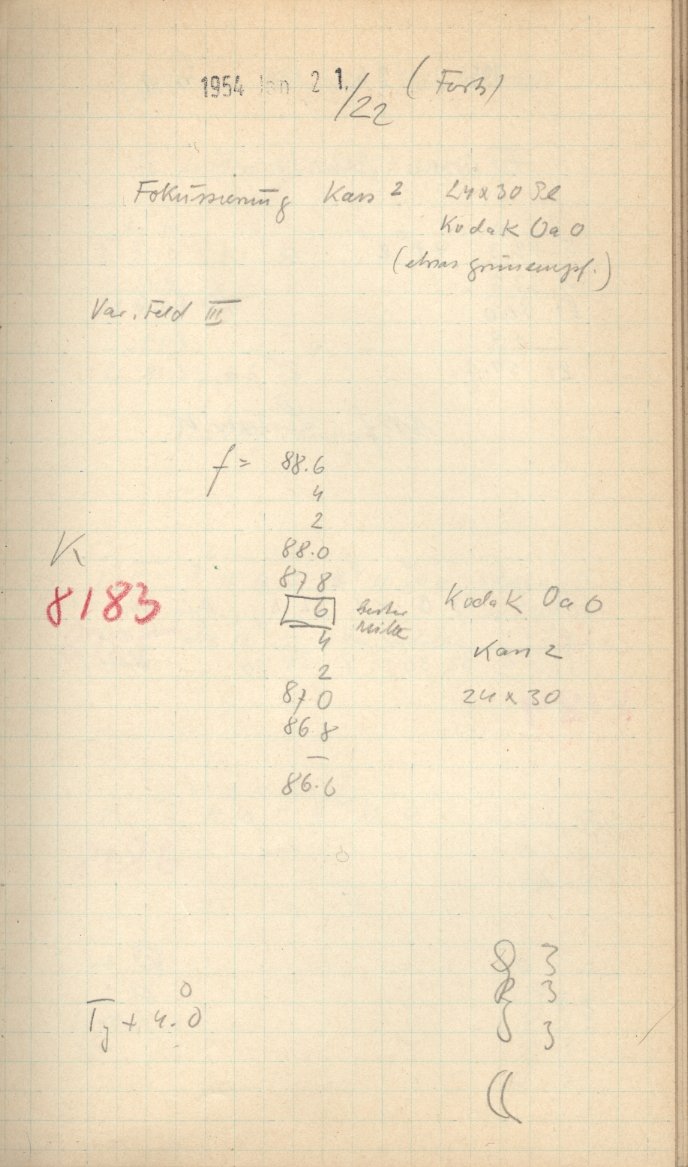 1954 Jan 21./22 (Forts)
Fokussierung Kass 2 24x30 Pl
Kodak Oa O
(etwas grünempf.)
Var. Feld III
f = 88.6
4
2
88.0
K
87 8
8183
6 bester Mitte
Kodak Oa O
4
Kass 2
2
87 0
24 x 30
86.8
86.6
3
3
T + 4.0
3